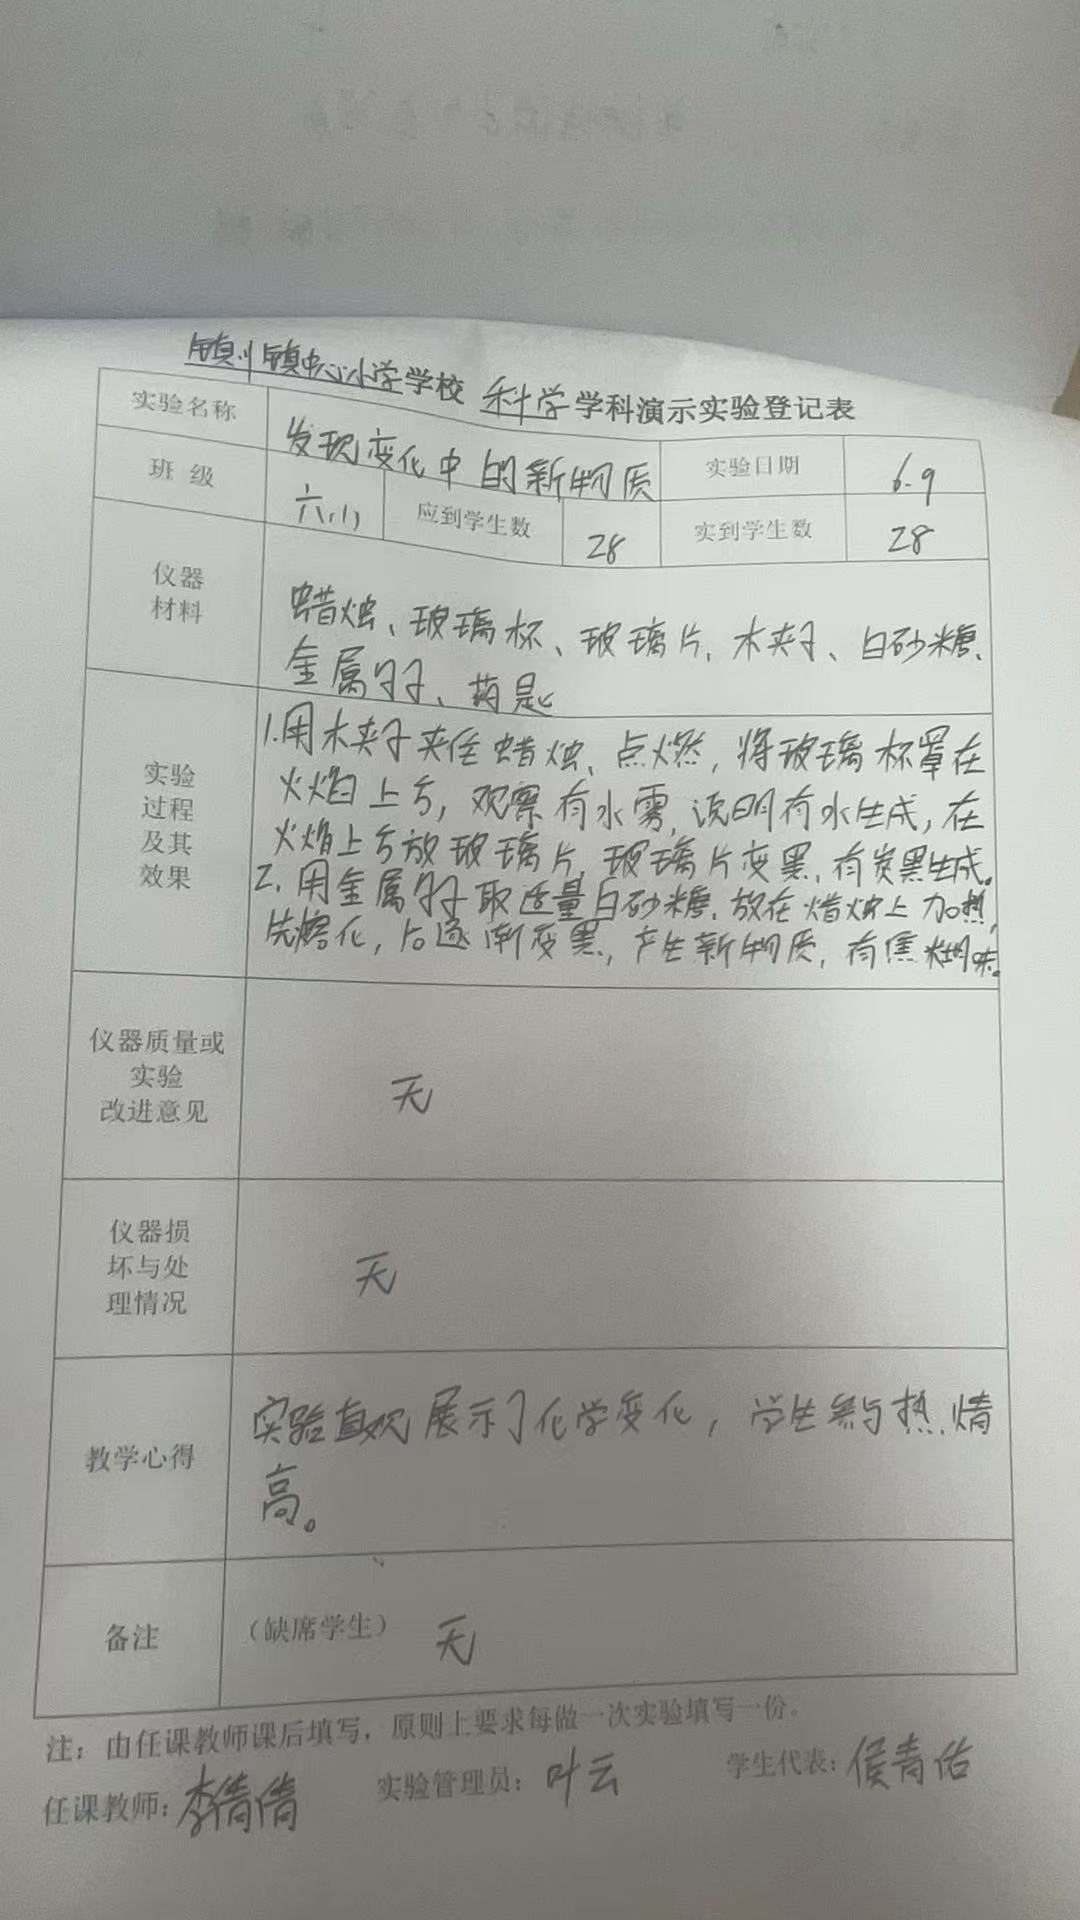 镇川镇中心小学学校 科学学科演示实验登记表
实验名称 发现变化中的新物质 实验日期 6.9
班 级 六(1) 应到学生数 28 实到学生数 28
仪器
材料
蜡烛、玻璃杯、玻璃片、木夹子、白砂糖、
金属勺子、药匙
实验
过程
及其
效果
1.用木夹子夹住蜡烛、点燃，将玻璃杯罩在
火焰上方，观察有水雾，说明有水生成，在
火焰上方放玻璃片，玻璃片变黑，有炭黑生成。
2.用金属勺子取适量白砂糖，放在蜡烛上加热，
先熔化，后逐渐变黑，产生新物质，有焦糊味。
仪器质量或
实验
改进意见
无
仪器损
坏与处
理情况
无
教学心得
实验直观展示了化学变化，学生参与热情
高。
备注 （缺席学生） 无
注：由任课教师课后填写，原则上要求每做一次实验填写一份。
任课教师：李倩倩 实验管理员：叶云 学生代表：侯青佑